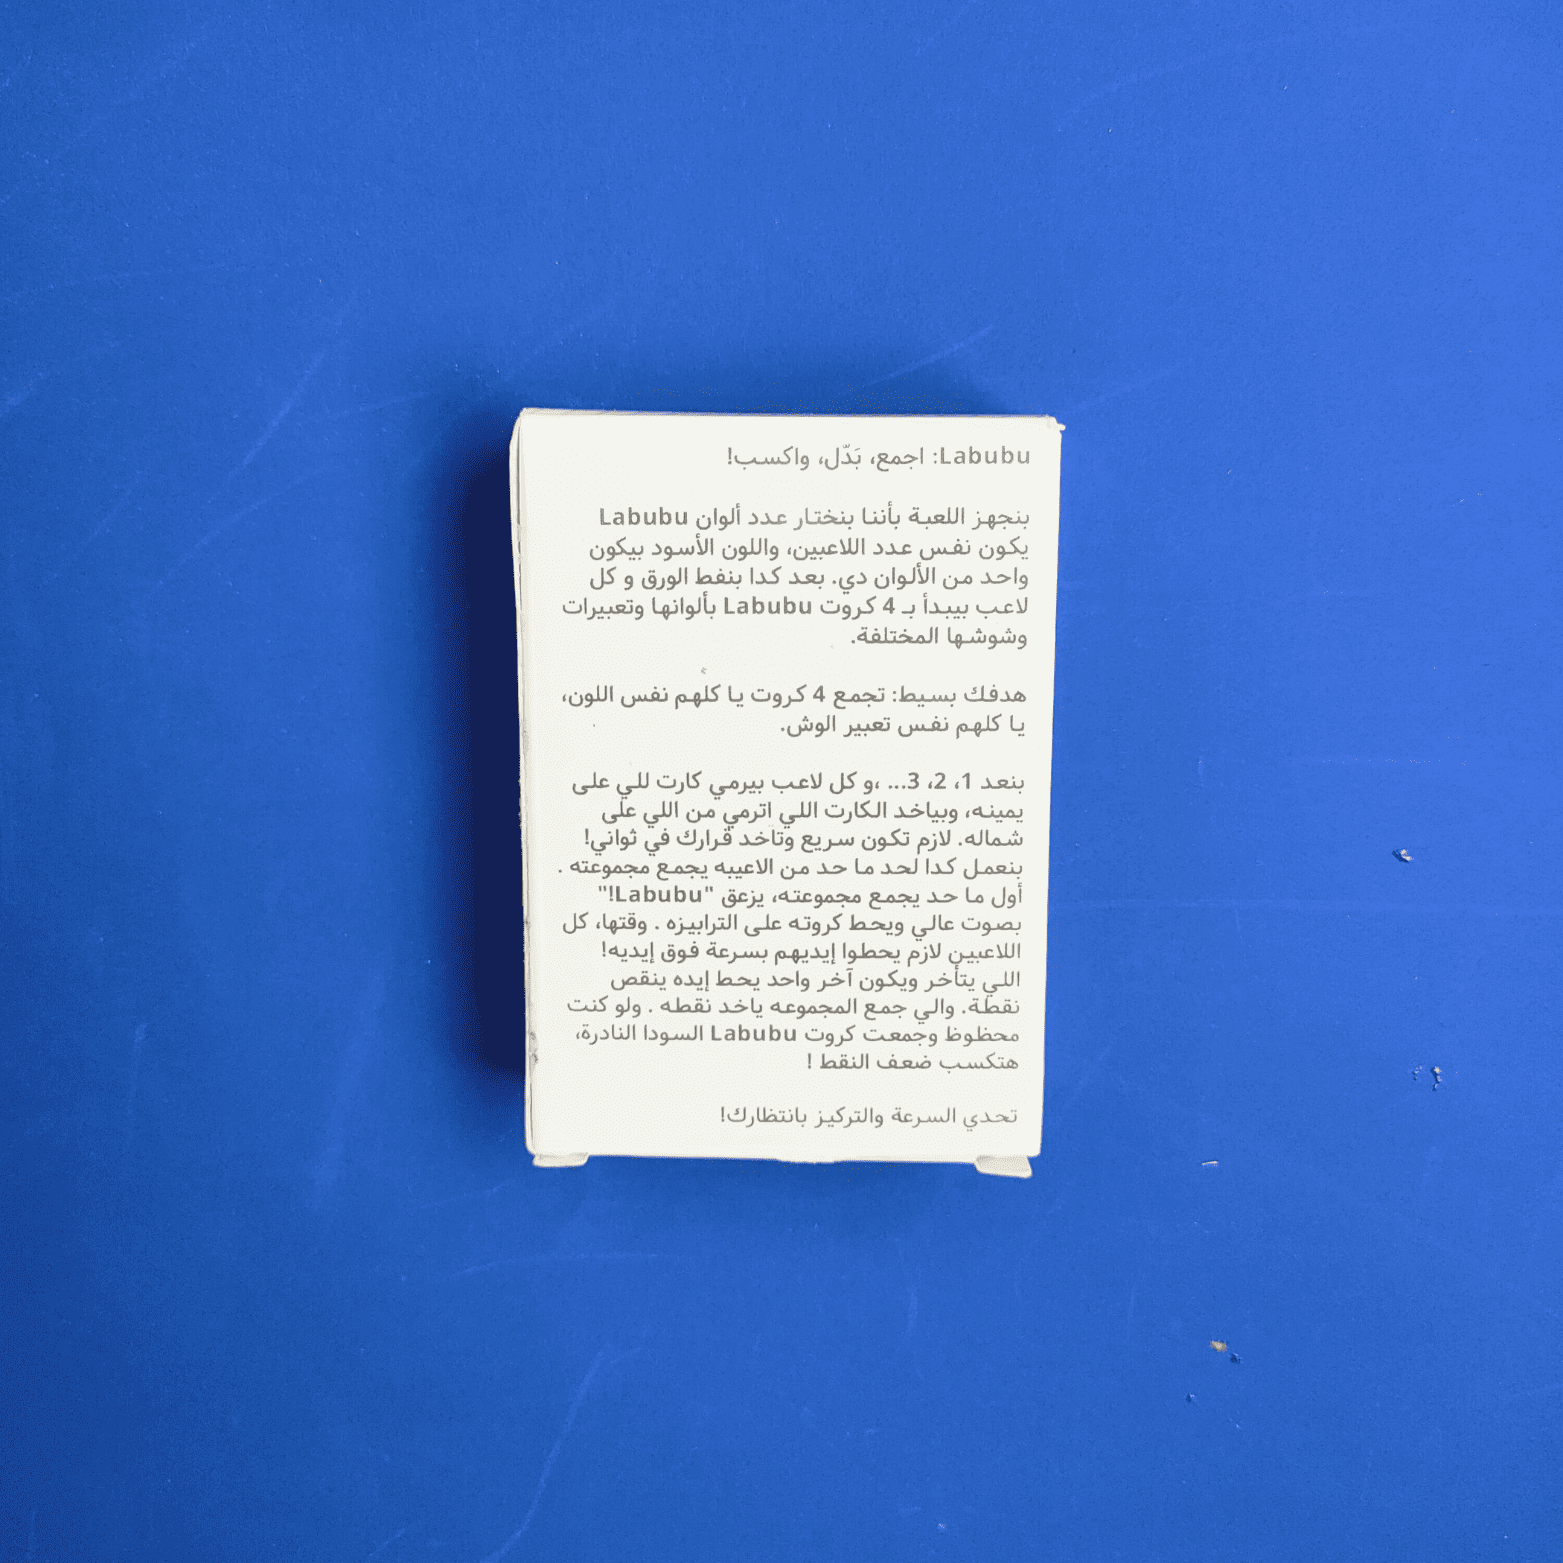 Labubu: اجمع، بَدّل، واكسب!
بنجهز اللعبة بأننا بنختار عدد ألوان Labubu
يكون نفس عدد اللاعبين، واللون الأسود بيكون
واحد من الألوان دي. بعد كدا بنفط الورق و كل
لاعب بيبدأ بـ 4 كروت Labubu بألوانها وتعبيرات
وشوشها المختلفة.
هدفك بسيط: تجمع 4 كروت يا كلهم نفس اللون،
يا كلهم نفس تعبير الوش.
بنعد 1، 2، 3... ،و كل لاعب بيرمي كارت للي على
يمينه، وبياخد الكارت اللي اترمي من اللي على
شماله. لازم تكون سريع وتاخد قرارك في ثواني!
بنعمل كدا لحد ما حد من الاعيبه يجمع مجموعته .
أول ما حد يجمع مجموعته، يزعق "Labubu!"
بصوت عالي ويحط كروته على الترابيزه . وقتها، كل
اللاعبين لازم يحطوا إيديهم بسرعة فوق إيديه!
اللي يتأخر ويكون آخر واحد يحط إيده ينقص
نقطة. والي جمع المجموعه ياخد نقطه . ولو كنت
محظوظ وجمعت كروت Labubu السودا النادرة،
هتكسب ضعف النقط !
تحدي السرعة والتركيز بانتظارك!